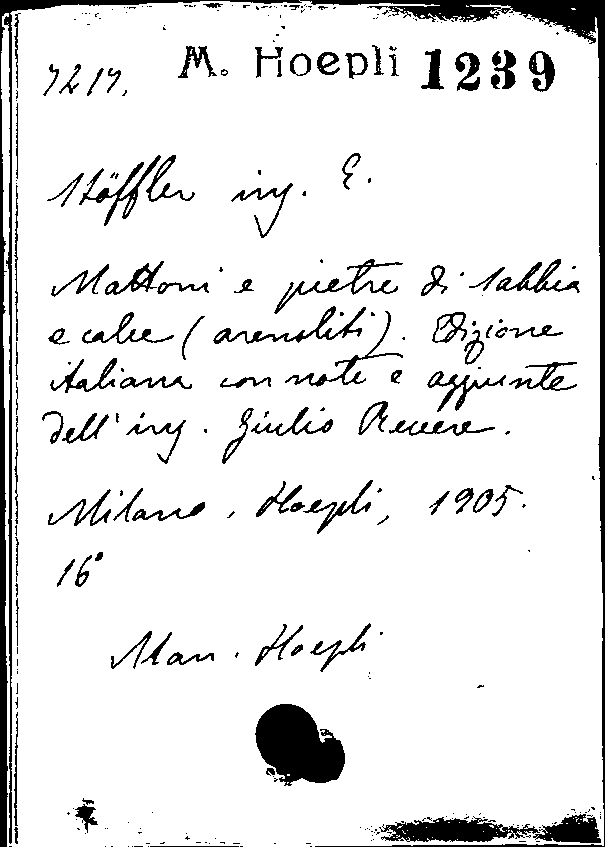 7217. M. Hoepli 1239
Stöffler ing. E.
Mattoni e pietre di sabbia
e calce (arenoliti). Edizione
italiana con note e aggiunte
dell' ing. Giulio Revere.
Milano, Hoepli, 1905.
16°
Man. Hoepli